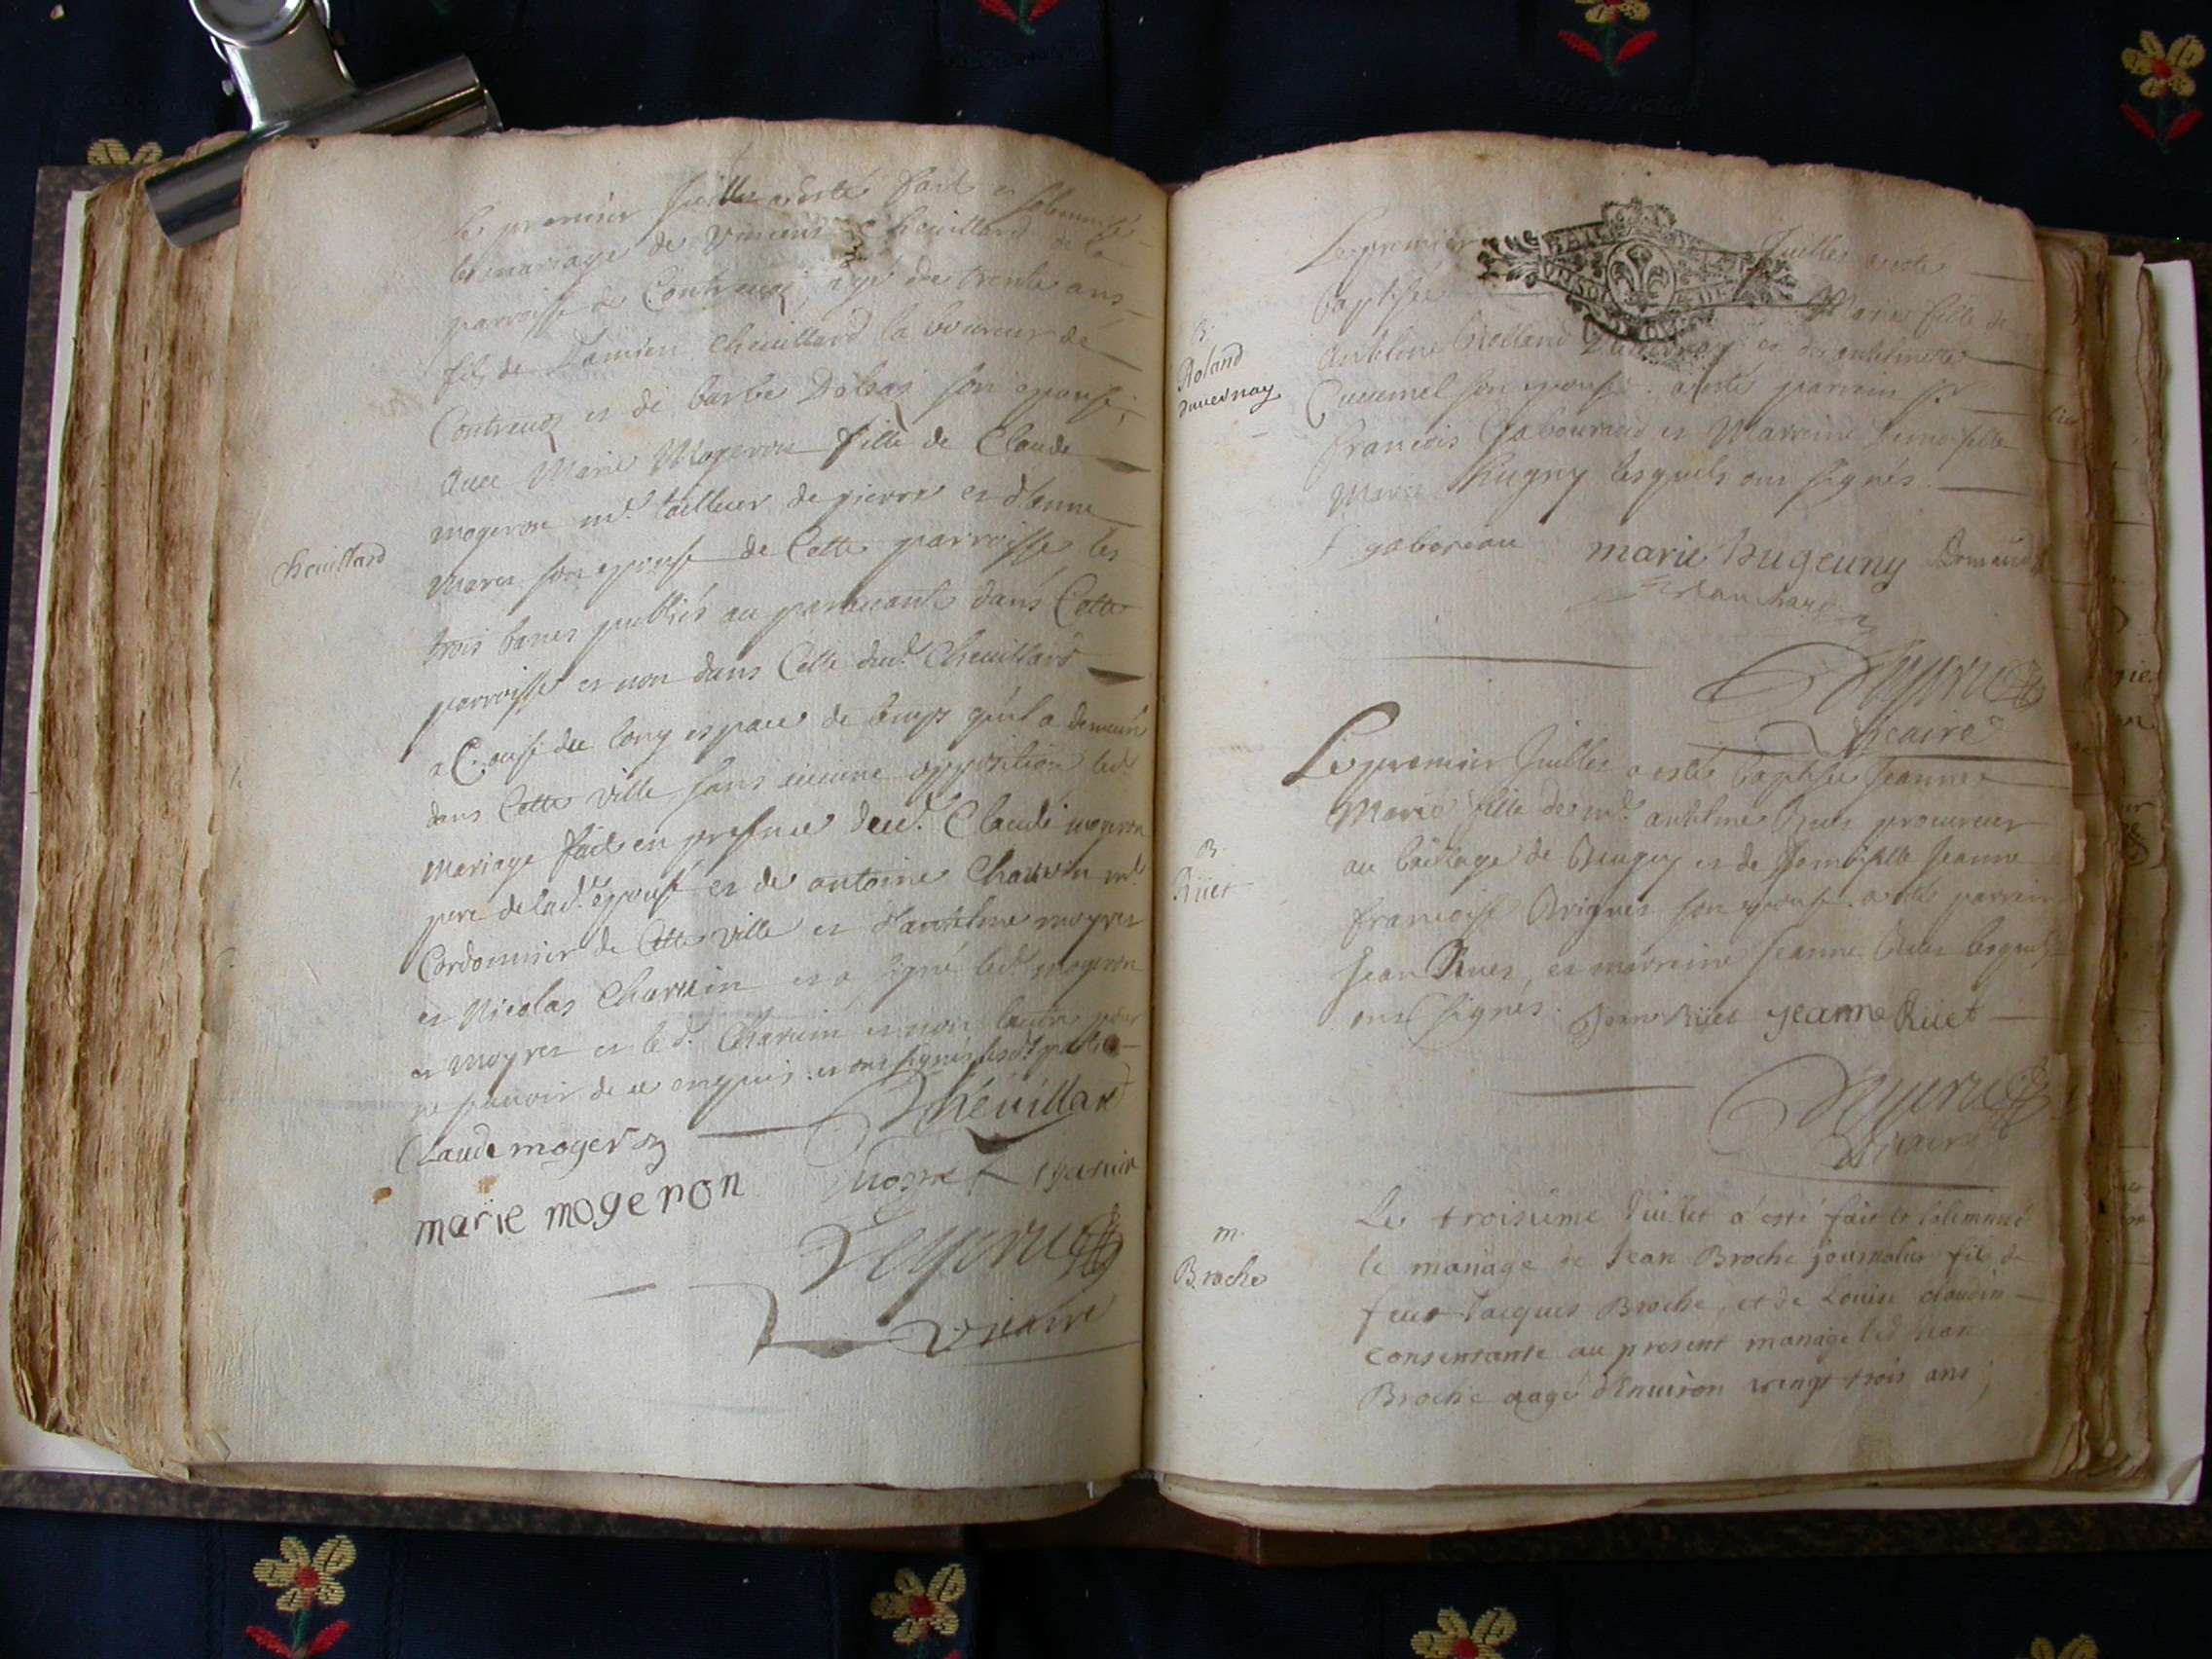 Le premier Juillet a esté fait et solemnisé
le mariage de Vincent Cheuillard de la
parroisse de Contreuoz, agé de trente ans
fils de Damien Cheuillard laboureur de
Contreuoz et de barbe son epouse,
auec Marie Mogeron fille de Claude
mogeron m.e tailleur de pierre et d'anne
son epouse de Cette parroisse, les
trois bancs publiés au parauant dans Cette
parroisse et non dans Celle dud. Cheuillard
a Cause du long espace de temps qu'il a demeuré
dans Cette ville sans aucune opposition led.
Mariage fait en presence dud. Claude mogeron
pere de lad. epouse et de antoine Charuin m.e
Cordonnier de Cette ville et d'anthelme moyret
et Nicolas Charuin et a signé led. mogeron
et moyret et le d. Charuin et non
ne pouuoir de ce enquis. et ont signés lesd.
cheuillard
Cheuillard
Claude mogeron
marie mogeron
moyret Charuin
vicaire
Le premier Juillet a este
baptisée Marie fille de
anthelme Rolland Duuernay et de anthelmette
son epouse. a estés parrein s.r
francois Gaboureau et Marreine Demoiselle
Marie hugny lesquels ont signés
B.
Roland
duuernay
gaboreau marie hugeuny
vicaire
Le premier Juillet a estée baptisée Jeanne
Marie fille de m.e anthelme Ruet procureur
au bailliage de Beugey et de Damoiselle Jeanne
francoise son epouse. a esté parrein
Jean Ruet, et marreine Jeanne Ruet lesquels
ont signés. Jean Rüet jeanne Rüet
B.
Rüet
vicaire
Le troisieme Juillet a esté fait et solemnisé
le mariage de Jean Broche journalier fils de
feu Jacques Broche, et de Louise claudin
consentante au present mariage led Jean
Broche aagé d'Enuiron vingt trois ans,
m.
Broche